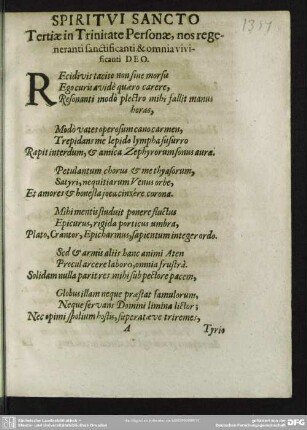 1317
SPIRITVI SANCTO
Tertiæ in Trinitate Personæ, nos rege-
neranti sanctificanti & omnia vivi-
ficanti DEO.
REcidivis tacite non sine morsu
Ego curis avidè quæro carere,
Resonanti modò plectro mihi fallit manus
horas,
Modò vates operosum cano carmen,
Trepidans me lepido lympha susurro
Rapit interdum, & amica Zephyrorum sonus aura.
Petulantum chorus & me thyasorum,
Satyri, nequitiarum Venus orbe,
Et amores & honesta joca cinxêre corona.
Mihi mentis studuit ponere fluctus
Epicurus, rigida porticus umbra,
Plato, Crantor, Epicharmus, sapientum integer ordo.
Sed & armis aliis hanc animi Aten
Procul arcere laboro, omnia frustrà.
Solidam nulla parit res mihi sub pectore pacem,
Globus illam neque præstat famulorum,
Neque servans Domini limina lictor;
Nec opimi spolium hostis, superatæve triremes,
A
Tyrio